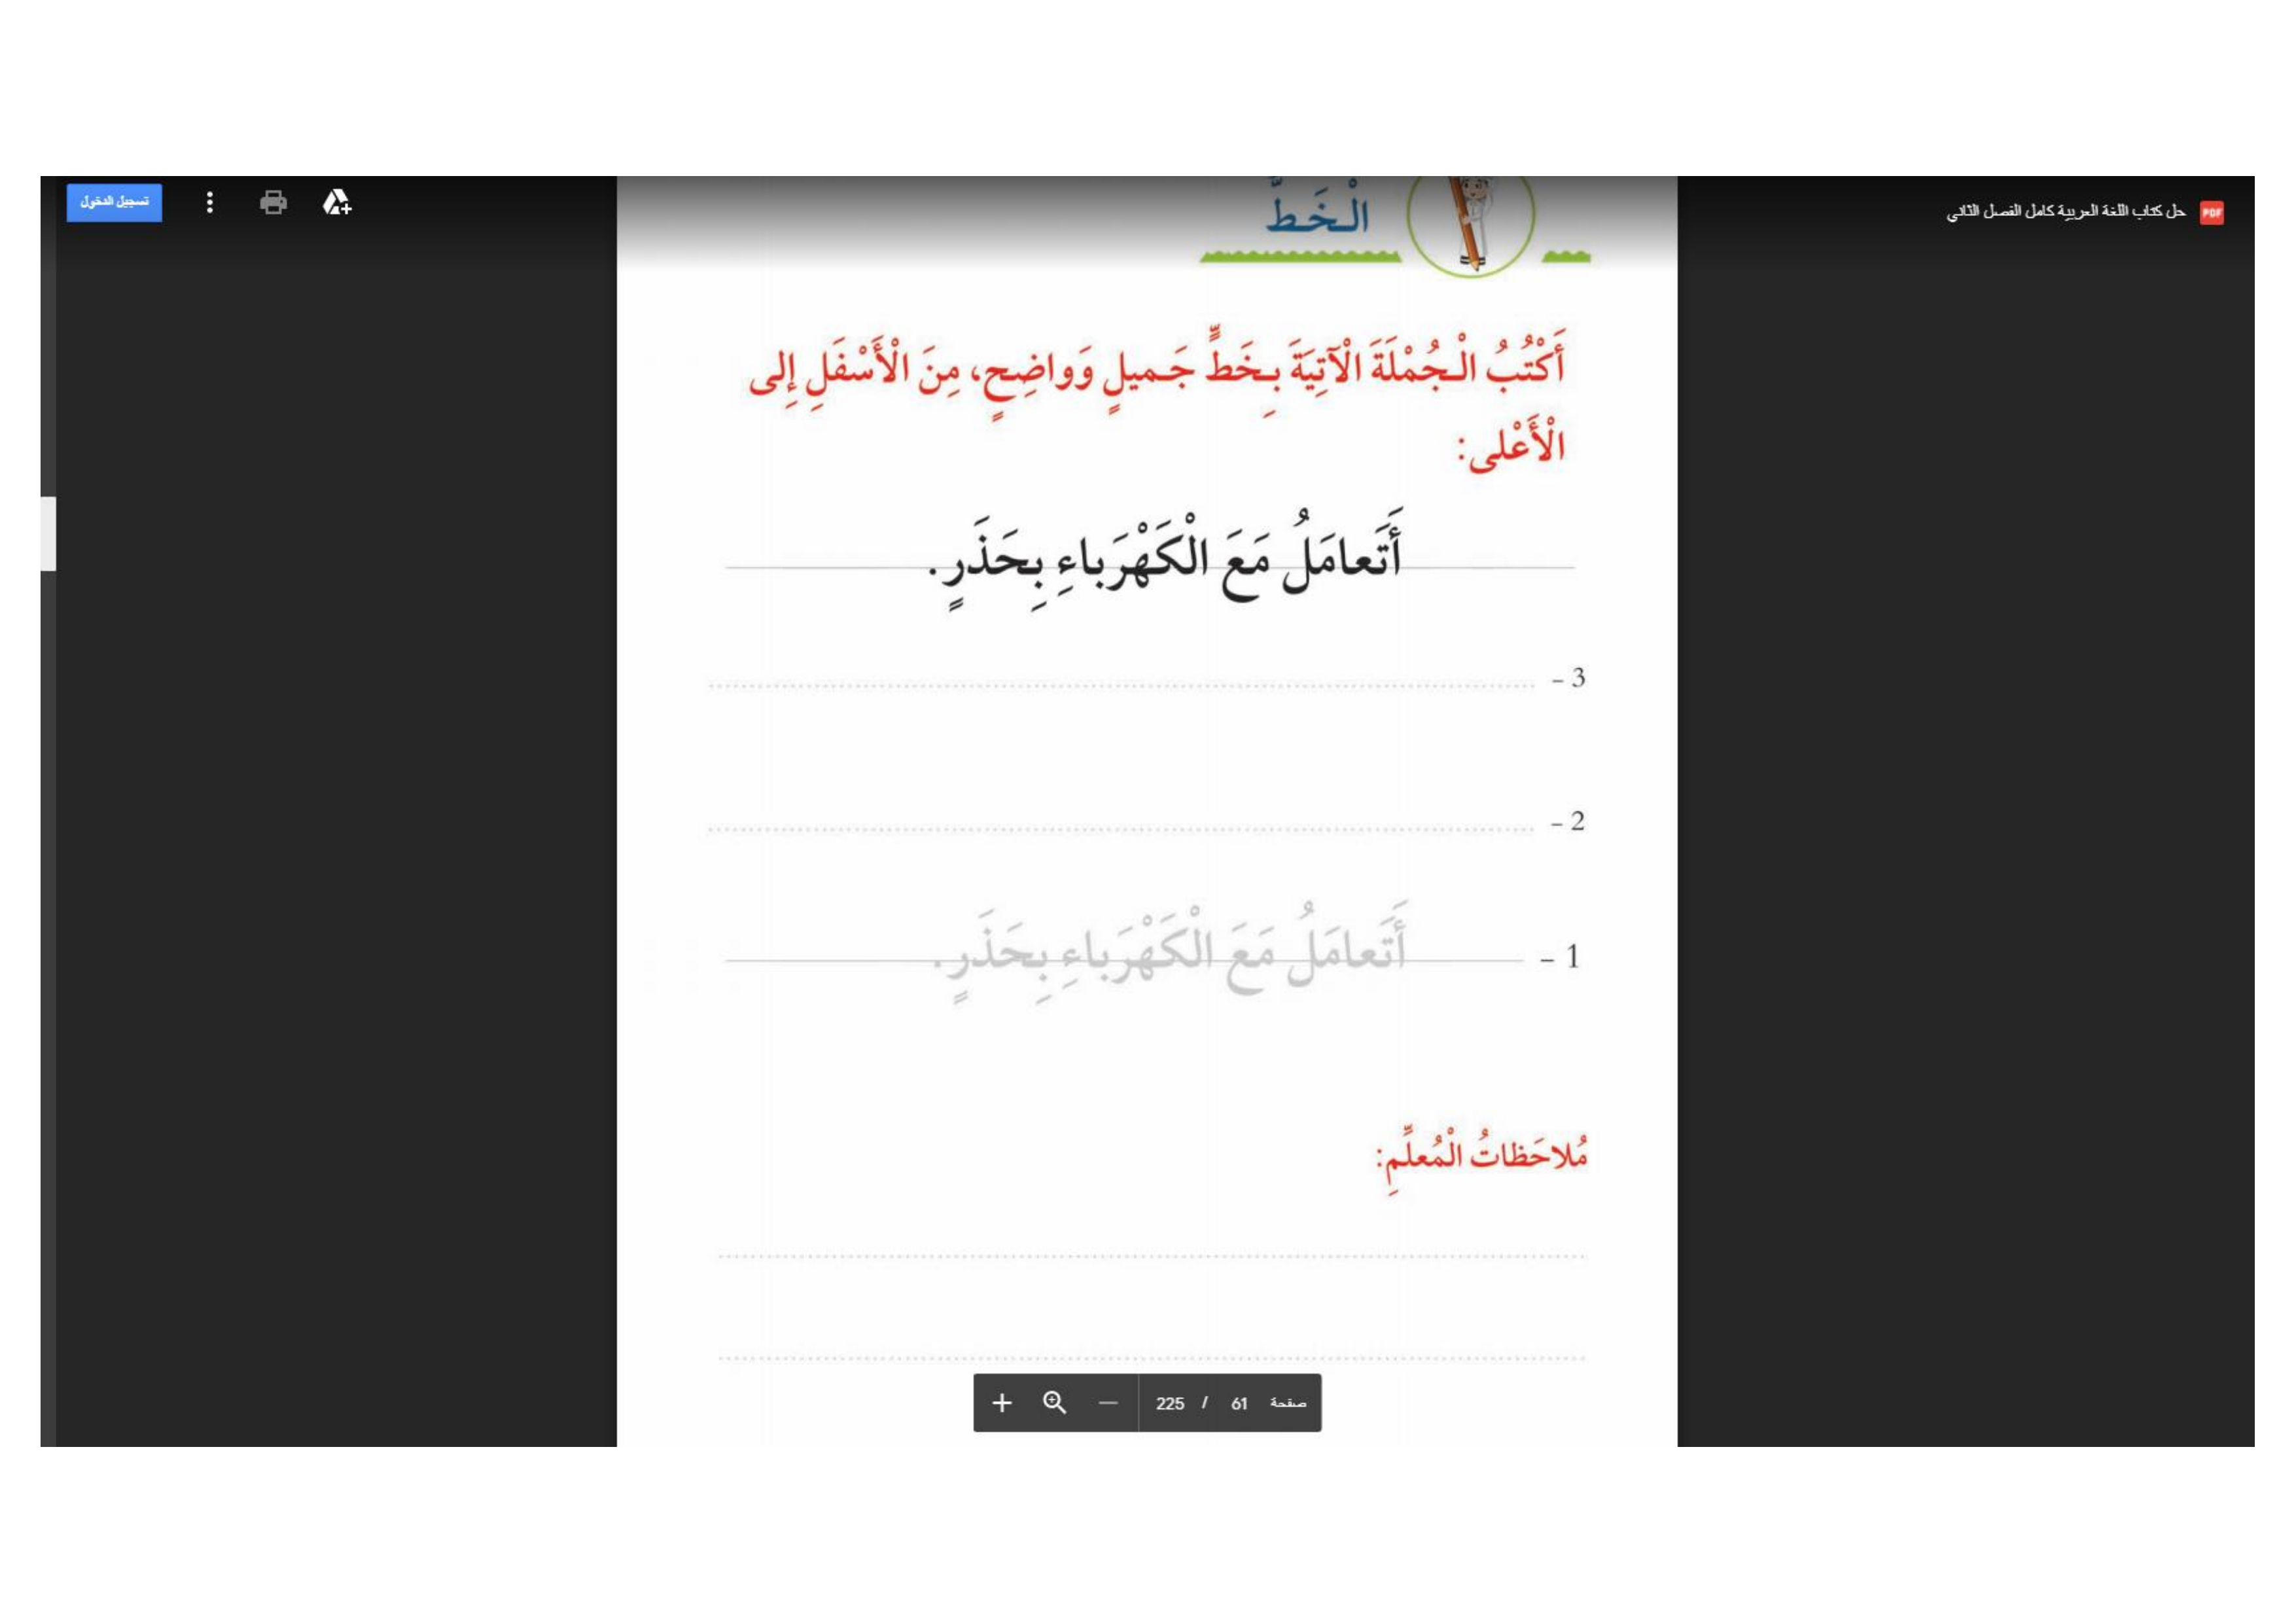 تسجيل الدخول
حل كتاب اللغة العربية كامل الفصل الثاني
PDF
الْخَطُّ
أَكْتُبُ الْجُمْلَةَ الْآتِيَةَ بِخَطٍّ جَميلٍ وَواضِحٍ، مِنَ الْأَسْفَلِ إِلى
الْأَعْلى:
أَتَعامَلُ مَعَ الْكَهْرَباءِ بِحَذَرٍ.
3 -
2 -
1 - أَتَعامَلُ مَعَ الْكَهْرَباءِ بِحَذَرٍ.
مُلاحَظاتُ الْمُعلِّمِ:
صفحة 61 / 225